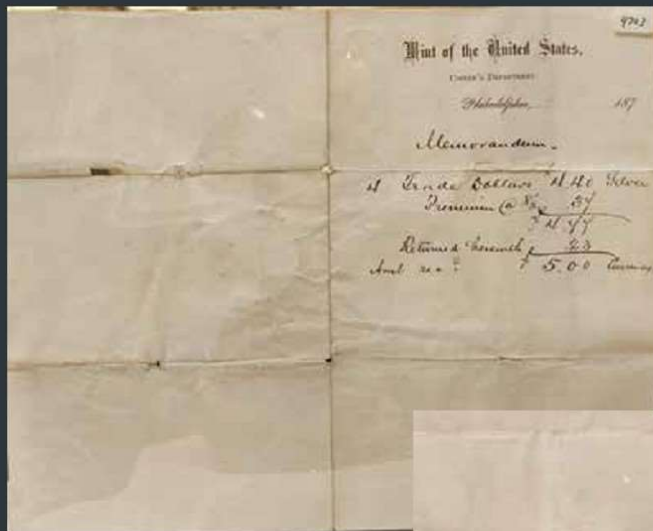 9743
Mint of the United States,
Coiner's Department
Philadelphia, 187
Memorandum -
4 Trade Dollars 4.40 Silver
Premium @ 37
$ 4.77
Returned herewith 23
Amt rec'd $ 5.00 Currency